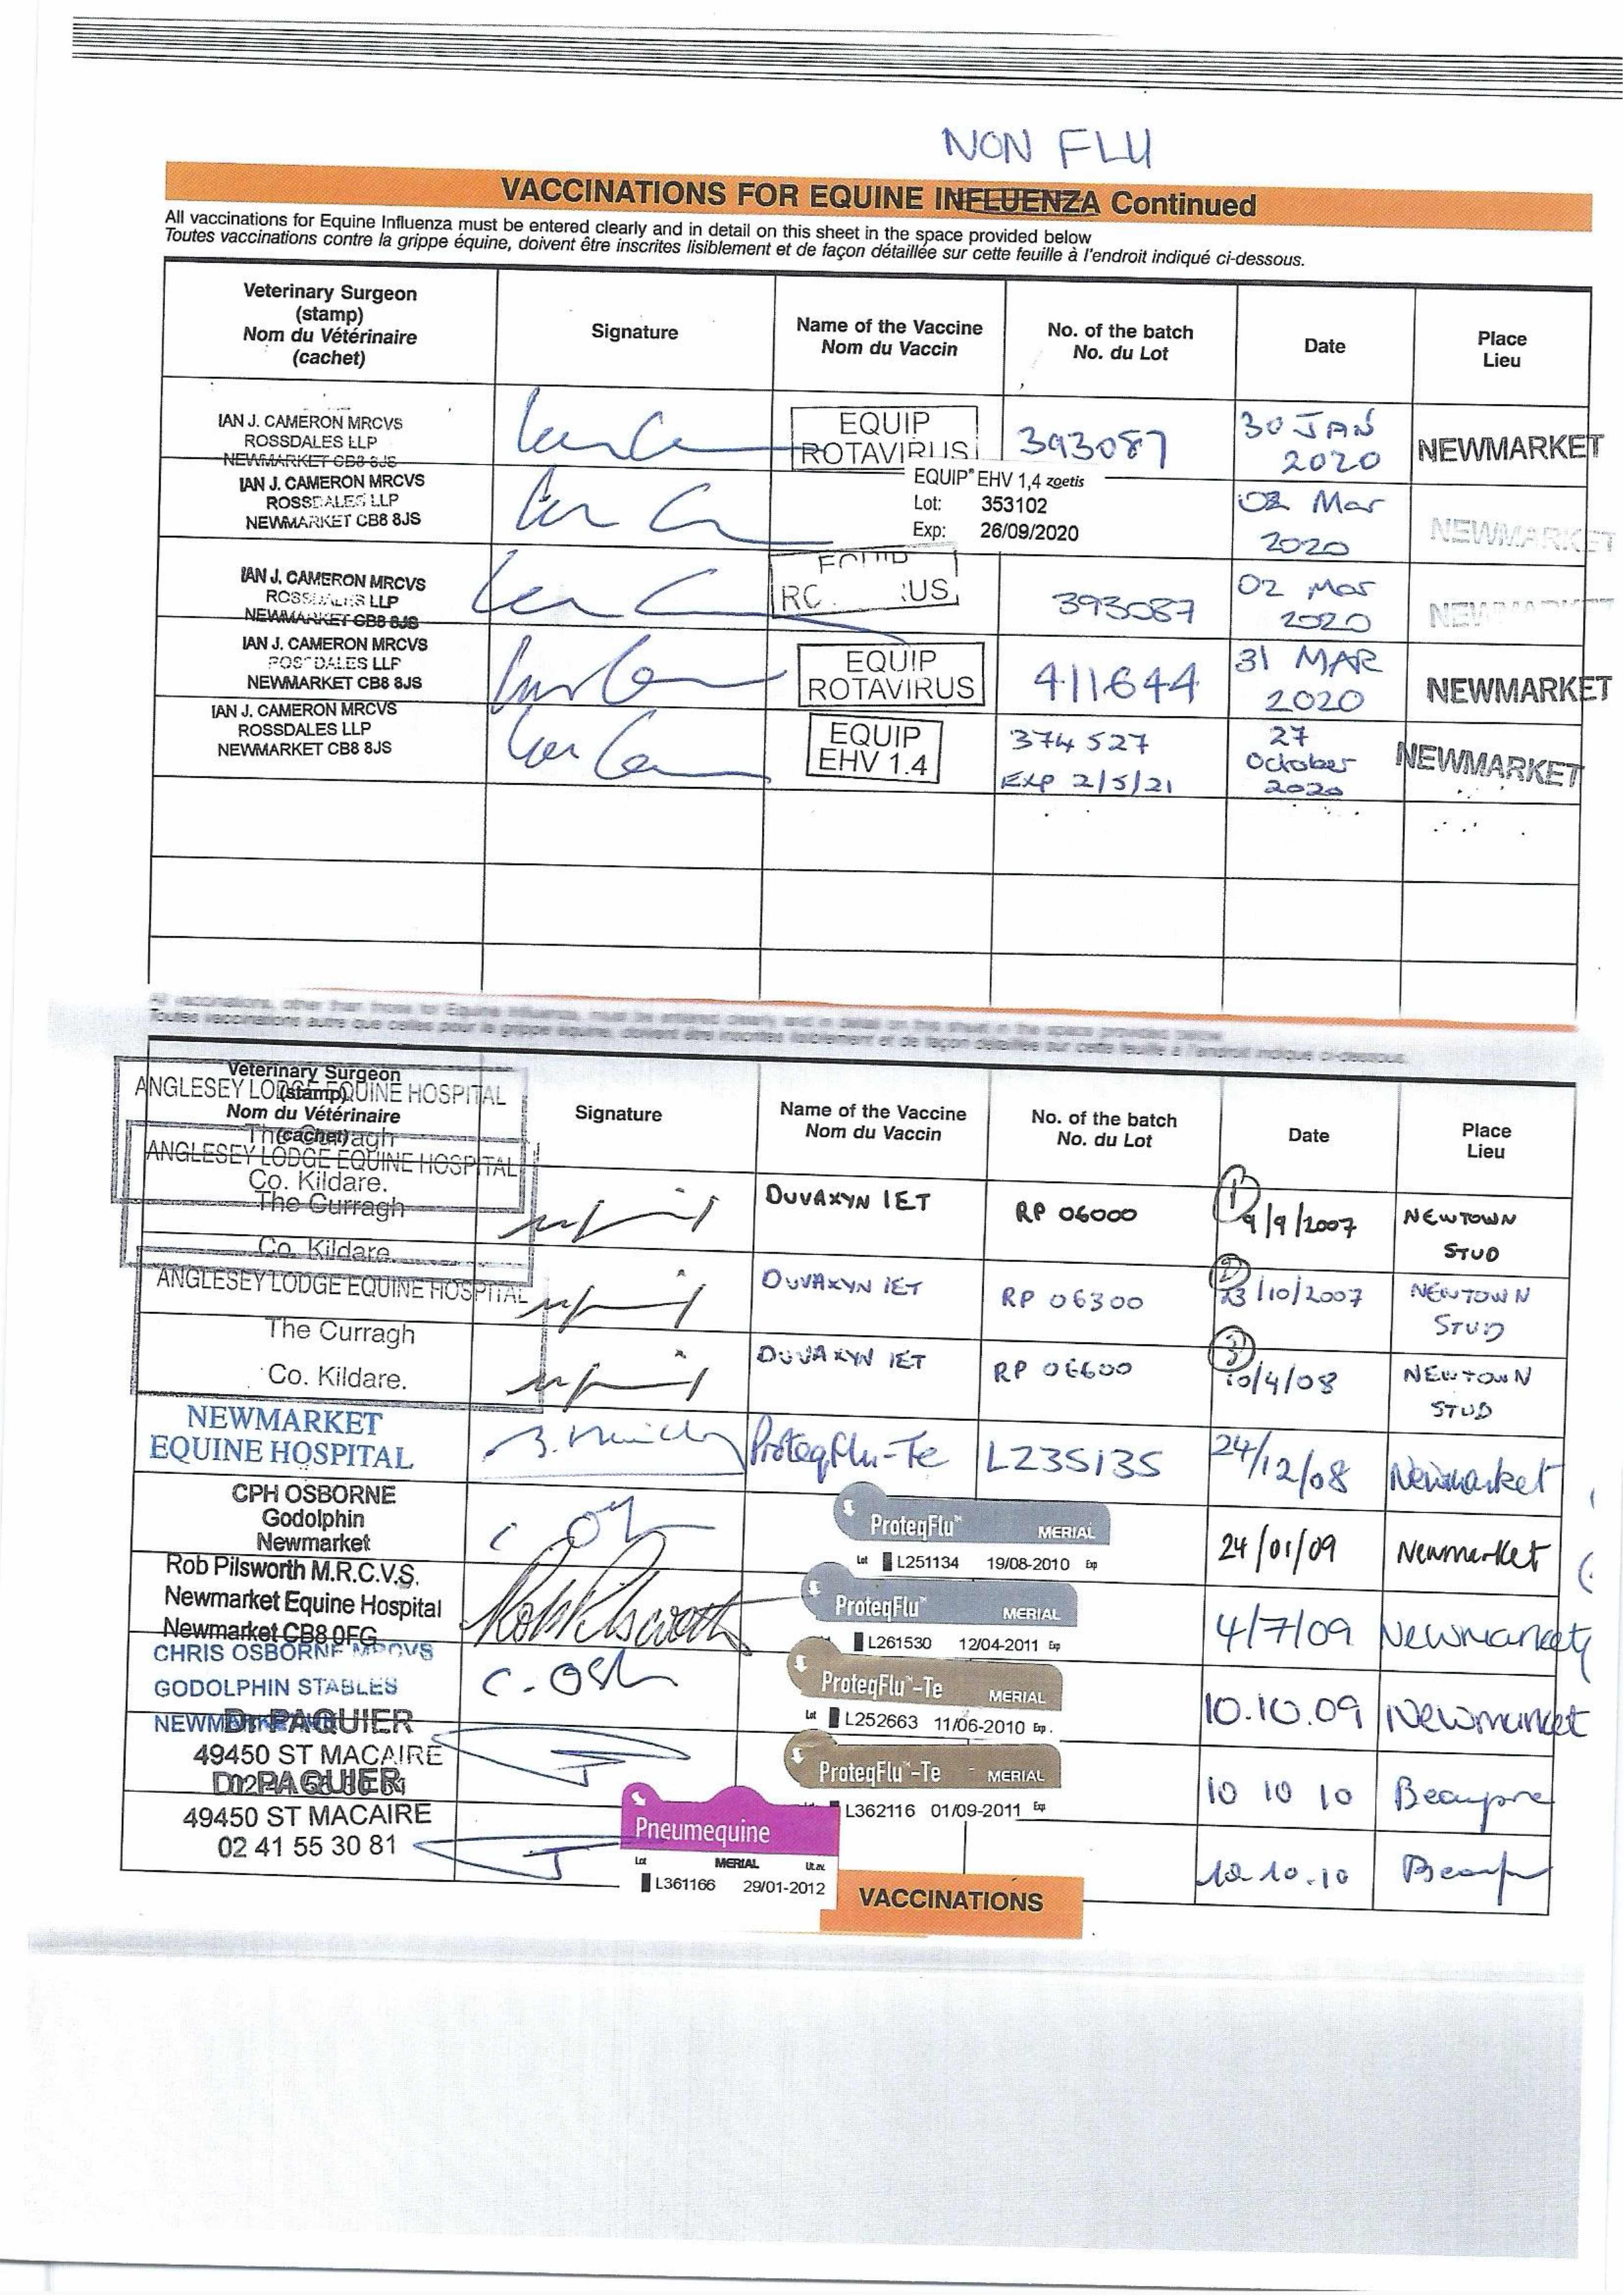 NON FLU
VACCINATIONS FOR EQUINE INFLUENZA Continued
All vaccinations for Equine Influenza must be entered clearly and in detail on this sheet in the space provided below
Toutes vaccinations contre la grippe équine, doivent être inscrites lisiblement et de façon détaillée sur cette feuille à l'endroit indiqué ci-dessous.
Veterinary Surgeon
(stamp)
Nom du Vétérinaire
(cachet)
Signature
Name of the Vaccine
Nom du Vaccin
No. of the batch
No. du Lot
Date
Place
Lieu
IAN J. CAMERON MRCVS
ROSSDALES LLP
NEWMARKET CB8 8JS
EQUIP
ROTAVIRUS
393087
30 JAN
2020
NEWMARKET
IAN J. CAMERON MRCVS
ROSSDALES LLP
NEWMARKET CB8 8JS
EQUIP® EHV 1,4 zoetis
Lot: 353102
Exp: 26/09/2020
02 Mar
2020
NEWMARKET
IAN J. CAMERON MRCVS
ROSSDALES LLP
NEWMARKET CB8 8JS
EQUIP
RO US
393087
02 Mar
2020
NEWMARKET
IAN J. CAMERON MRCVS
ROSSDALES LLP
NEWMARKET CB8 8JS
EQUIP
ROTAVIRUS
411644
31 MAR
2020
NEWMARKET
IAN J. CAMERON MRCVS
ROSSDALES LLP
NEWMARKET CB8 8JS
EQUIP
EHV 1.4
374527
EXP 2/5/21
27
October
2020
NEWMARKET
All vaccinations, other than those for Equine Influenza, must be entered clearly and in detail on this sheet in the space provided below.
Toutes vaccinations autre que celles pour la grippe équine, doivent être inscrites lisiblement et de façon détaillée sur cette feuille à l'endroit indiqué ci-dessous.
Veterinary Surgeon
(stamp)
Nom du Vétérinaire
(cachet)
Signature
Name of the Vaccine
Nom du Vaccin
No. of the batch
No. du Lot
Date
Place
Lieu
ANGLESEY LODGE EQUINE HOSPITAL
The Curragh
Co. Kildare.
DUVAXYN IET
RP 06000
1
9/9/2007
NEWTOWN
STUD
ANGLESEY LODGE EQUINE HOSPITAL
The Curragh
Co. Kildare.
DUVAXYN IET
RP 06300
2
23/10/2007
NEWTOWN
STUD
ANGLESEY LODGE EQUINE HOSPITAL
The Curragh
Co. Kildare.
DUVAXYN IET
RP 06600
3
10/4/08
NEWTOWN
STUD
NEWMARKET
EQUINE HOSPITAL
ProteqFlu-Te
L235135
24/12/08
Newmarket
CPH OSBORNE
Godolphin
Newmarket
ProteqFlu™ MERIAL
Lot L251134 19/08-2010 Exp
24/01/09
Newmarket
Rob Pilsworth M.R.C.V.S.
Newmarket Equine Hospital
Newmarket CB8 0FG
Rob Pilsworth
ProteqFlu™ MERIAL
L261530 12/04-2011 Exp
4/7/09
Newmarket
CHRIS OSBORNE MRCVS
GODOLPHIN STABLES
NEWMARKET
C. Osb
ProteqFlu™-Te MERIAL
Lot L252663 11/06-2010 Exp.
10.10.09
Newmarket
Dr PAQUIER
49450 ST MACAIRE
ProteqFlu™-Te MERIAL
L362116 01/09-2011 Exp
10 10 10
Dr PAQUIER
49450 ST MACAIRE
02 41 55 30 81
Pneumequine
Lot MERIAL Ut.av.
L361166 29/01-2012
10.10.10
VACCINATIONS